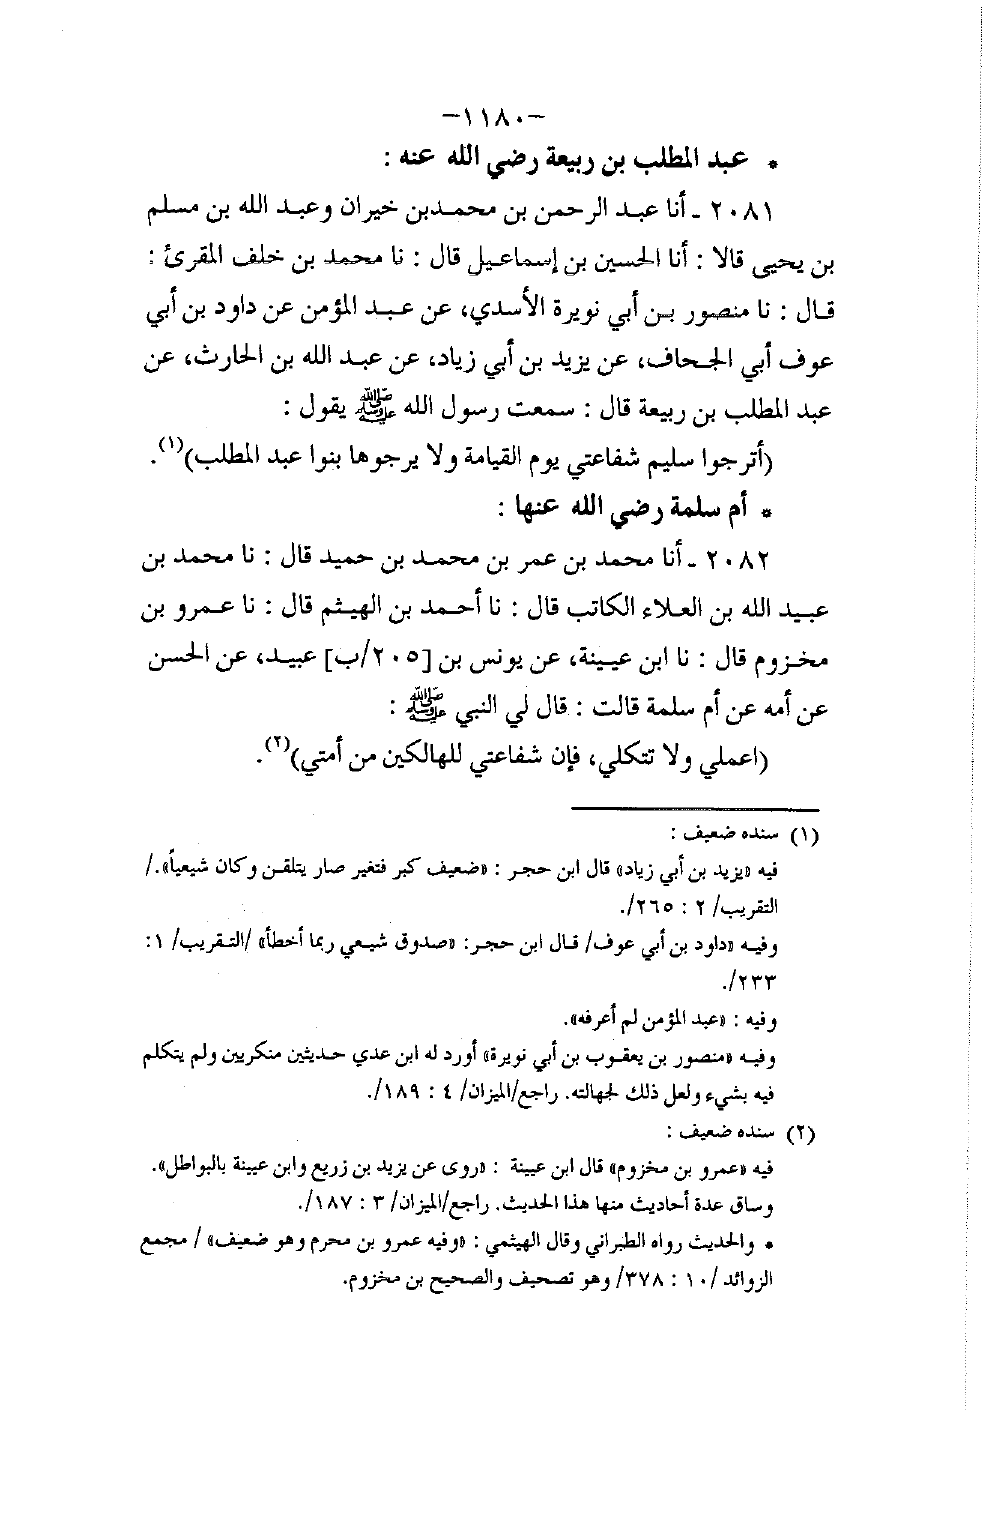 -١١٨٠-
* عبد المطلب بن ربيعة رضي الله عنه :
٢٠٨١ ـ أنا عبد الرحمن بن محمد بن خيران وعبد الله بن مسلم
بن يحيى قالا : أنا الحسين بن إسماعيل قال : نا محمد بن خلف المقرئ :
قال : نا منصور بن أبي نويرة الأسدي، عن عبد المؤمن عن داود بن أبي
عوف أبي الجحاف، عن يزيد بن أبي زياد، عن عبد الله بن الحارث، عن
عبد المطلب بن ربيعة قال : سمعت رسول الله ﷺ يقول :
(أترجوا سليم شفاعتي يوم القيامة ولا يرجوها بنوا عبد المطلب)(١).
* أم سلمة رضي الله عنها :
٢٠٨٢ ـ أنا محمد بن عمر بن محمد بن حميد قال : نا محمد بن
عبيد الله بن العلاء الكاتب قال : نا أحمد بن الهيثم قال : نا عمرو بن
مخزوم قال : نا ابن عيينة، عن يونس بن [٢٠٥/ب] عبيد، عن الحسن
عن أمه عن أم سلمة قالت : قال لي النبي ﷺ :
(اعملي ولا تتكلي، فإن شفاعتي للهالكين من أمتي)(٢).
(١) سنده ضعيف :
فيه «يزيد بن أبي زياد» قال ابن حجر : «ضعيف كبر فتغير صار يتلقن وكان شيعياً»./
التقريب/ ٢ : ٢٦٥/.
وفيه «داود بن أبي عوف/ قال ابن حجر: «صدوق شيعي ربما أخطأ» /التقريب/ ١:
٢٣٣/.
وفيه : «عبد المؤمن لم أعرفه».
وفيه «منصور بن يعقوب بن أبي نويرة» أورد له ابن عدي حديثين منكريين ولم يتكلم
فيه بشيء ولعل ذلك لجهالته. راجع/الميزان/ ٤ : ١٨٩/.
(٢) سنده ضعيف :
فيه «عمرو بن مخزوم» قال ابن عيينة : «روى عن يزيد بن زريع وابن عيينة بالبواطل».
وساق عدة أحاديث منها هذا الحديث. راجع/الميزان/ ٣ : ١٨٧/.
• والحديث رواه الطبراني وقال الهيثمي : «وفيه عمرو بن محرم وهو ضعيف» / مجمع
الزوائد /١٠ : ٣٧٨/ وهو تصحيف والصحيح بن مخزوم.